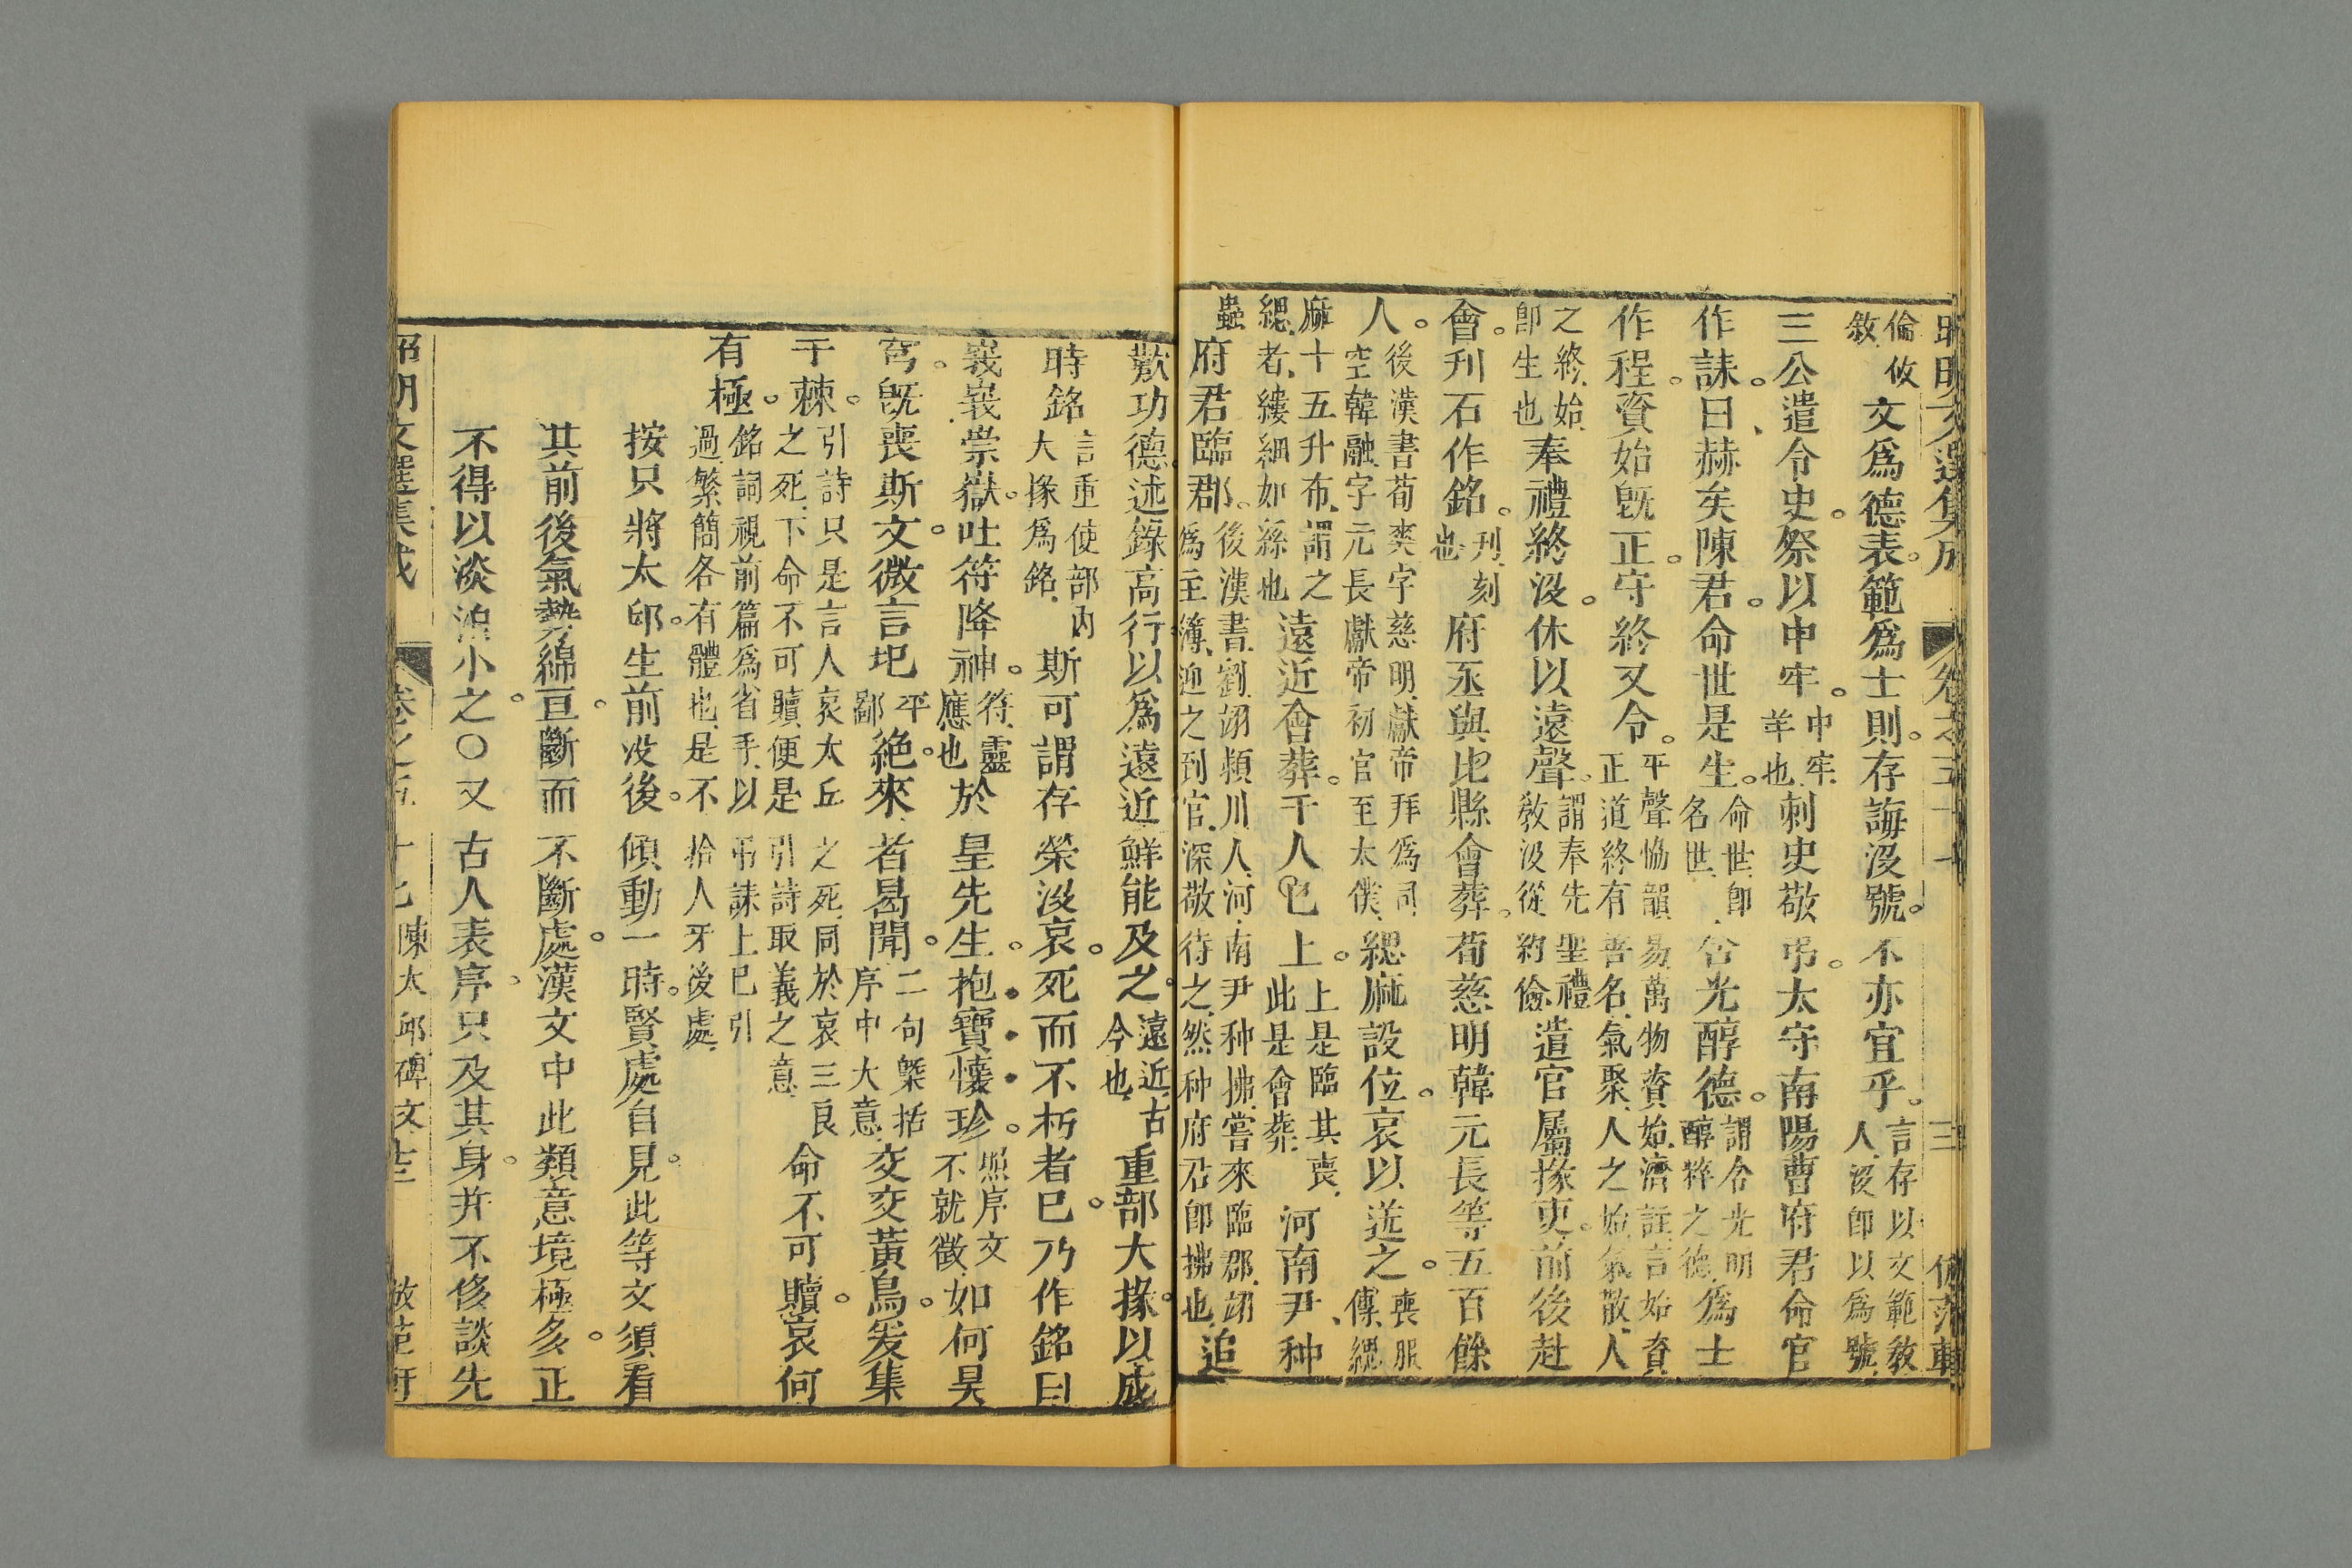 昭明文選集成 卷之五十七 三 倣范軒
倫攸
敘 文爲德表範爲士則存誨沒號不亦宜乎 言存以文範教
人沒卽以爲號
三公遣令史祭以中牢 中牢
羊也 刺史敬弔太守南陽曹府君命官
作誄曰赫矣陳君命世是生 命世卽
名世 含光醇德 謂含光明
醇粹之德 爲士
作程資始旣正守終又令 平聲協韻易萬物資始濟註言始資
正道終有善名氣聚人之始氣散人
之終始
卽生也 奉禮終沒休以遠聲 謂奉先聖禮
敎沒從約儉 遣官屬掾吏前後赴
會刊石作銘 刊刻
也 府丞與比縣會葬荀慈明韓元長等五百餘
人 後漢書荀爽字慈明獻帝拜爲司
空韓融字元長獻帝初官至太僕 緦麻設位哀以送之 喪服
傳緦
麻十五升布謂之
緦者縷細如絲也 遠近會葬千人已上 上是臨其喪
此是會葬 河南尹种
府君臨郡 後漢書劉翊潁川人河南尹种拂嘗來臨郡翊
爲主簿迎之到官深敬待之然种府君卽拂也 追
歎功德述錄高行以爲遠近鮮能及之 遠近古
今也 重部大掾以成
時銘 言重使部內
大掾爲銘 斯可謂存榮沒哀死而不朽者已乃作銘曰
峩峩崇嶽吐符降神 符靈
應也 於皇先生抱寶懷珍 照序文
不就徵 如何昊
穹旣喪斯文微言圮 平
鄙 絶來者曷聞 二句槩括
序中大意 交交黃鳥爰集
于棘 引詩只是言人哀太丘之死同於哀三良
之死下命不可贖便是引詩取義之意 命不可贖哀何
有極 銘詞視前篇爲省手以弔誄上已引
過繁簡各有體也是不拾人牙後處
按只將太邱生前沒後傾動一時賢處自見此等文須看
其前後氣勢綿亘斷而不斷處漢文中此類意境極多正
不得以淡泊小之○又古人表序只及其身幷不侈談先
昭明文選集成 卷之五十七 陳太邱碑文 倣范軒